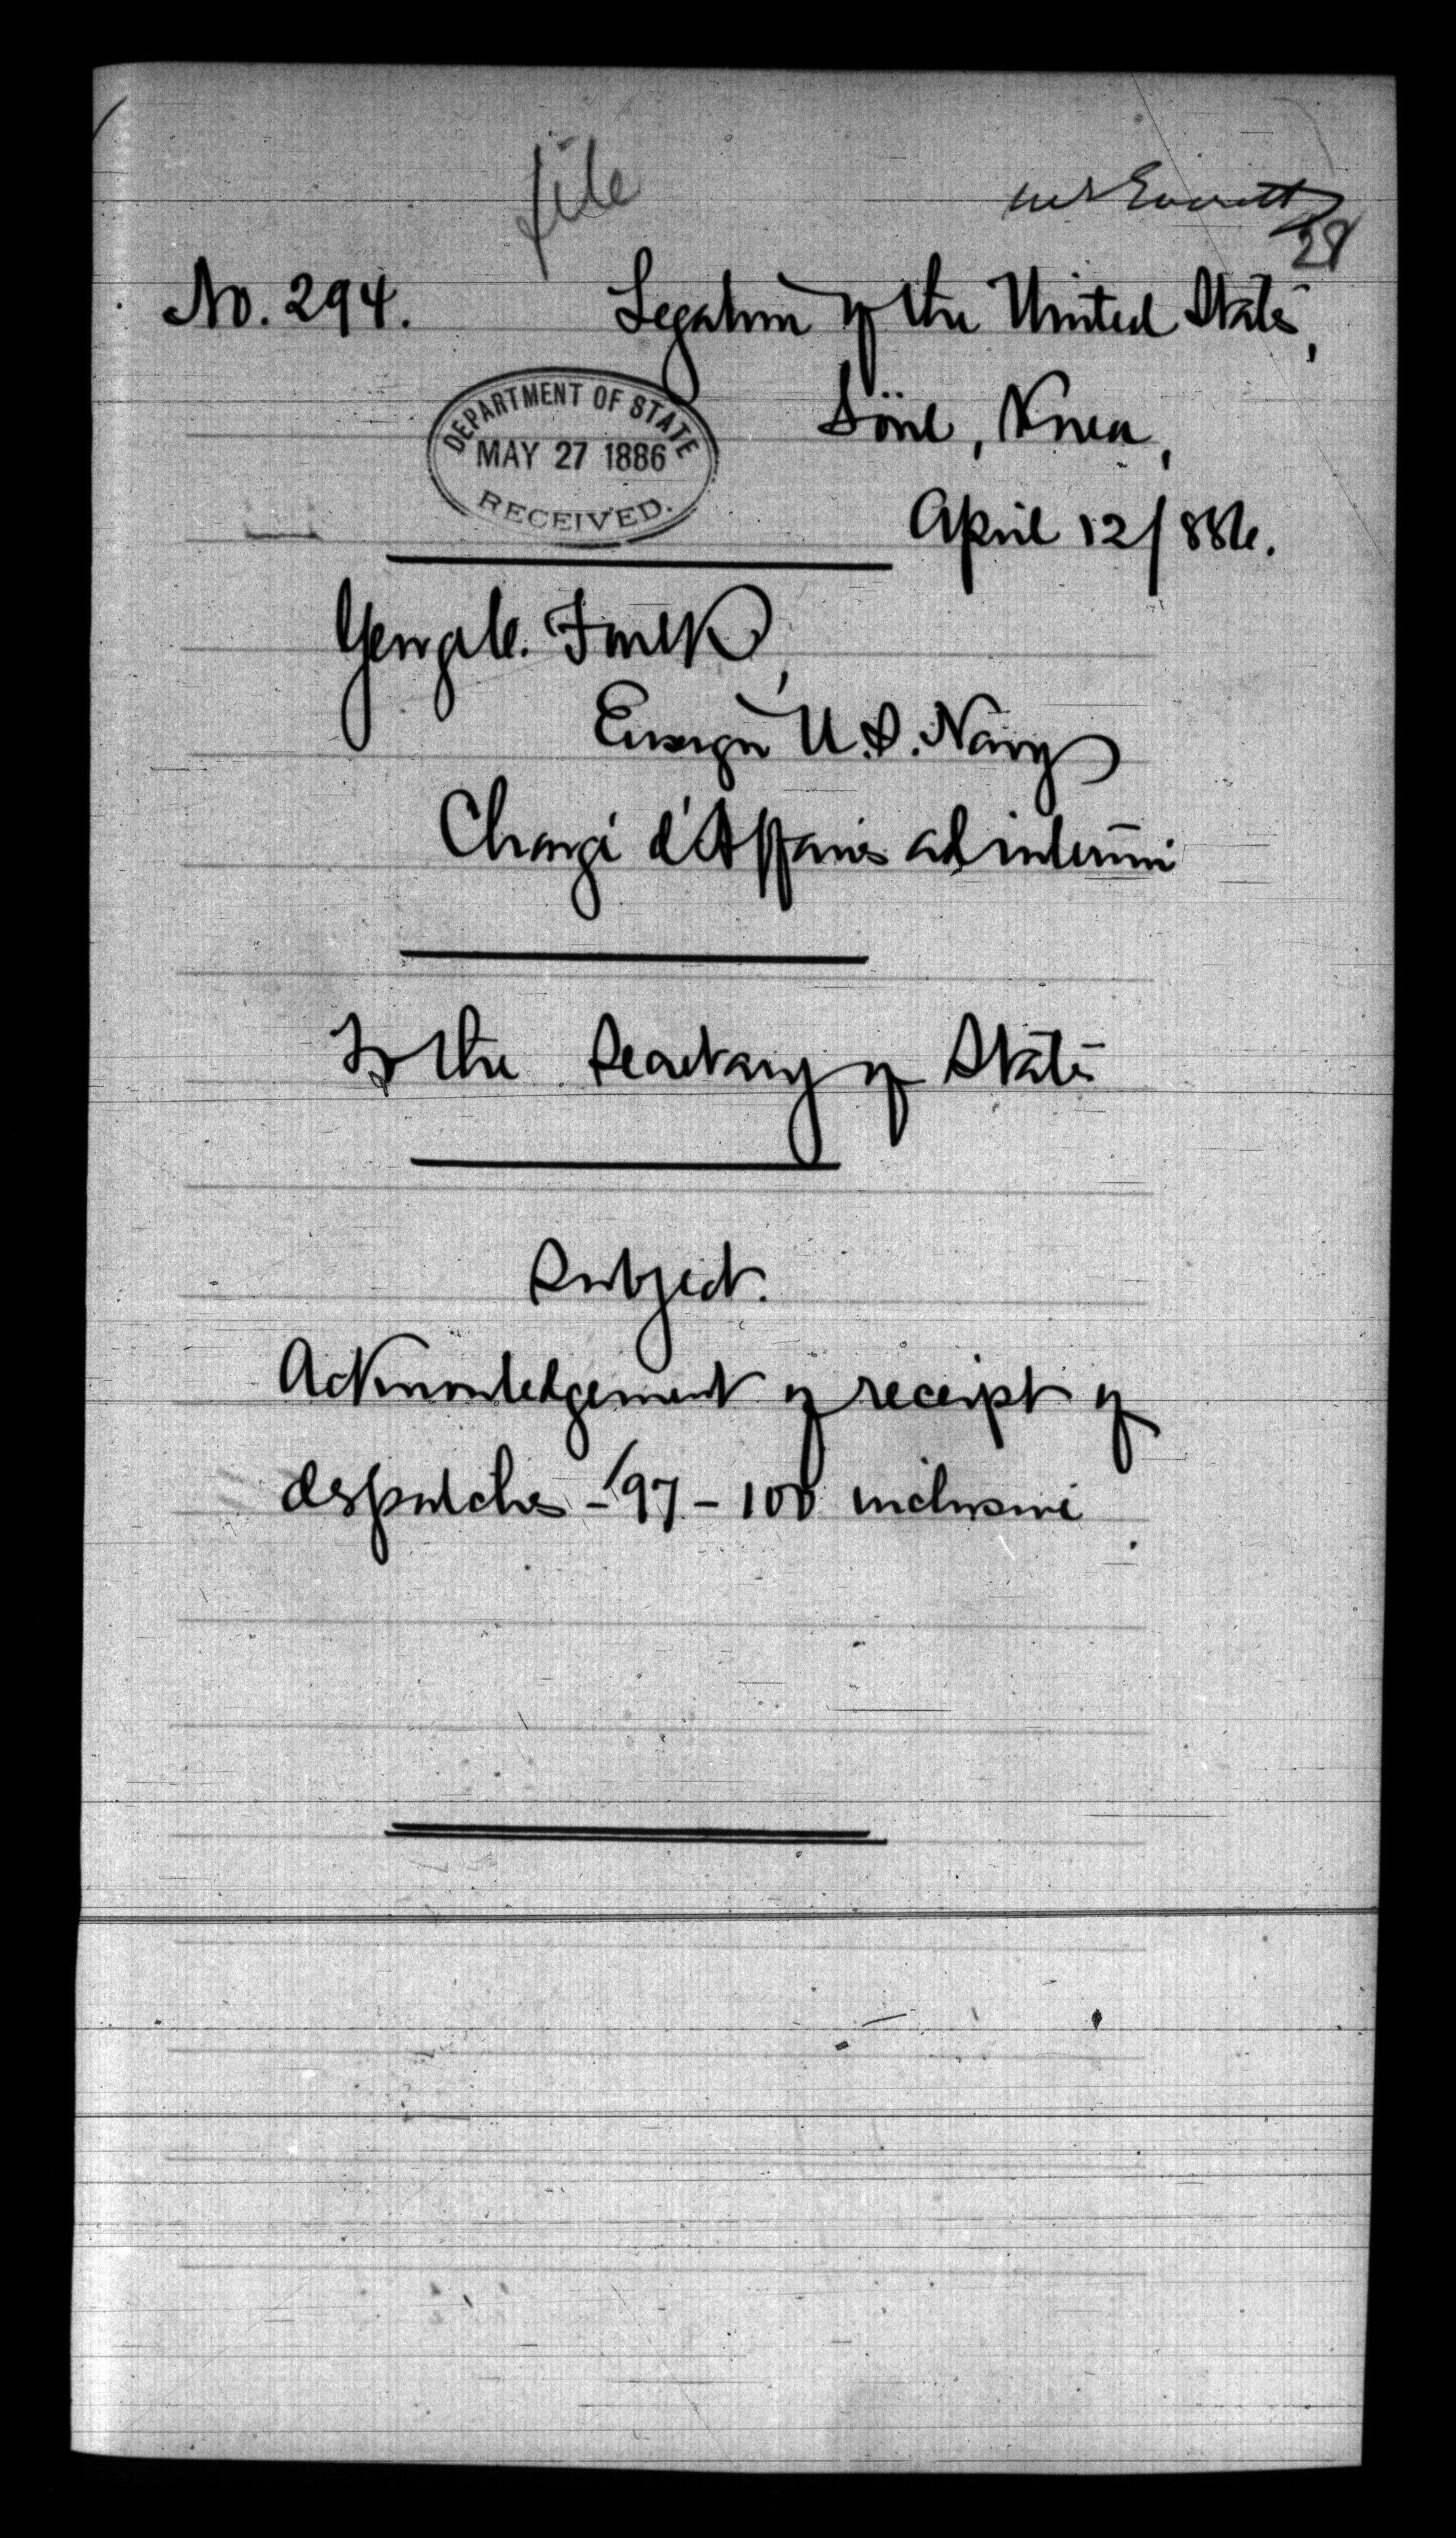 file
Mr Everett
28
No. 294.
Legation of the United States,
Söul, Korea,
April 12/886.
DEPARTMENT OF STATE
MAY 27 1886
RECEIVED.
George C. Foulk,
Ensign U.S. Navy
Chargé d'Affaires ad interim
To the Secretary of State
Subject.
Acknowledgement of receipt of
despatches - 97 - 100 inclusive.